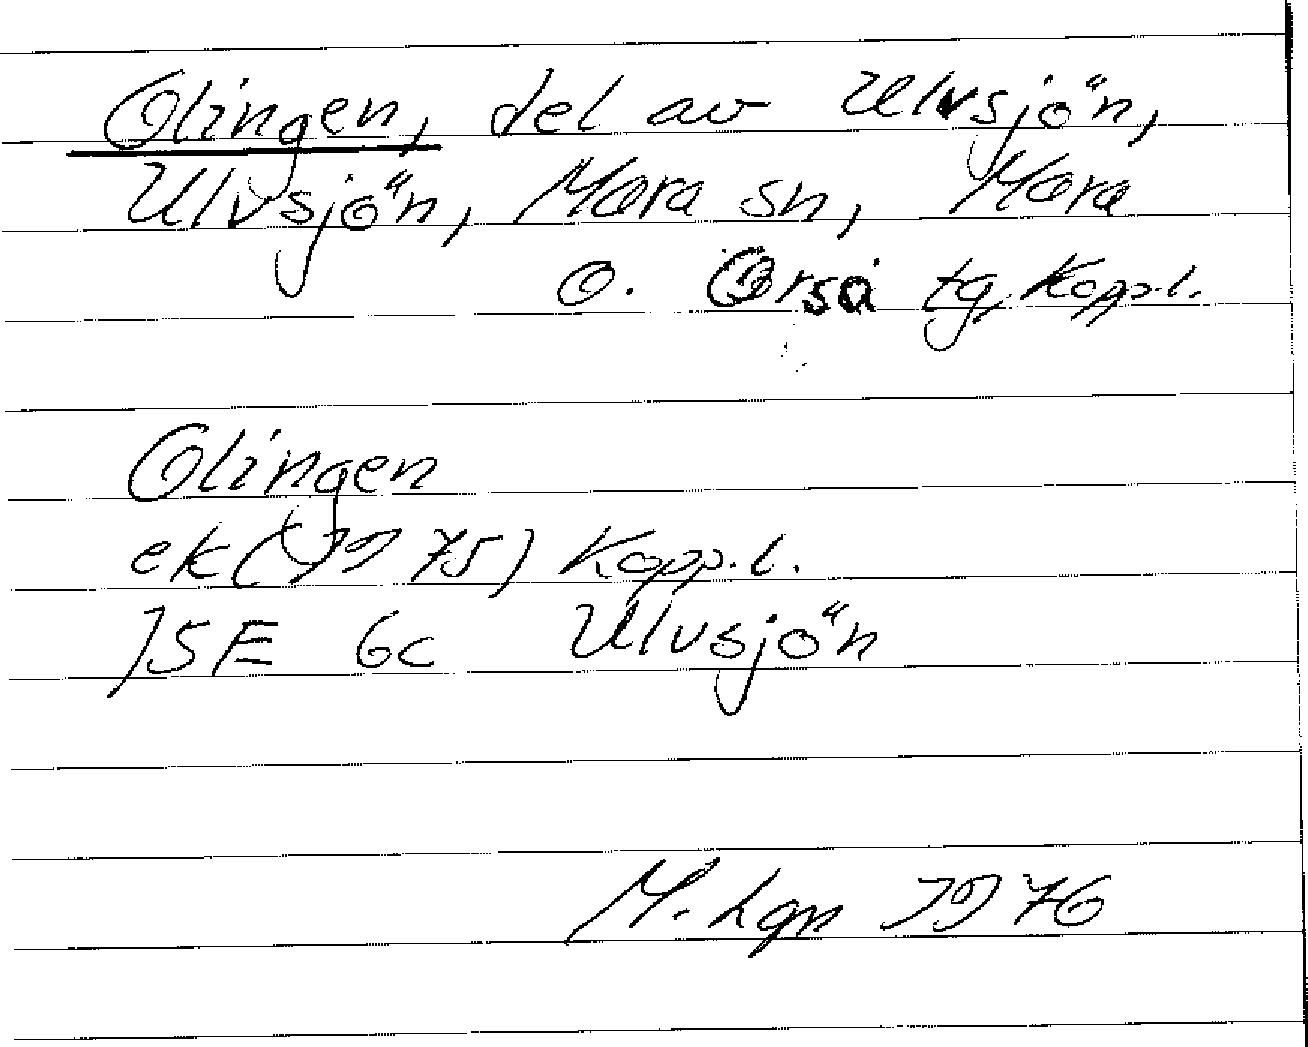 Olingen, del av Ulvsjön,
Ulvsjön, Mora sn, Mora
o. Orsa tg, Kopp.l.
Olingen
ek (1975) Kopp.l.
15E 6c Ulvsjön
M. Lgn 1976